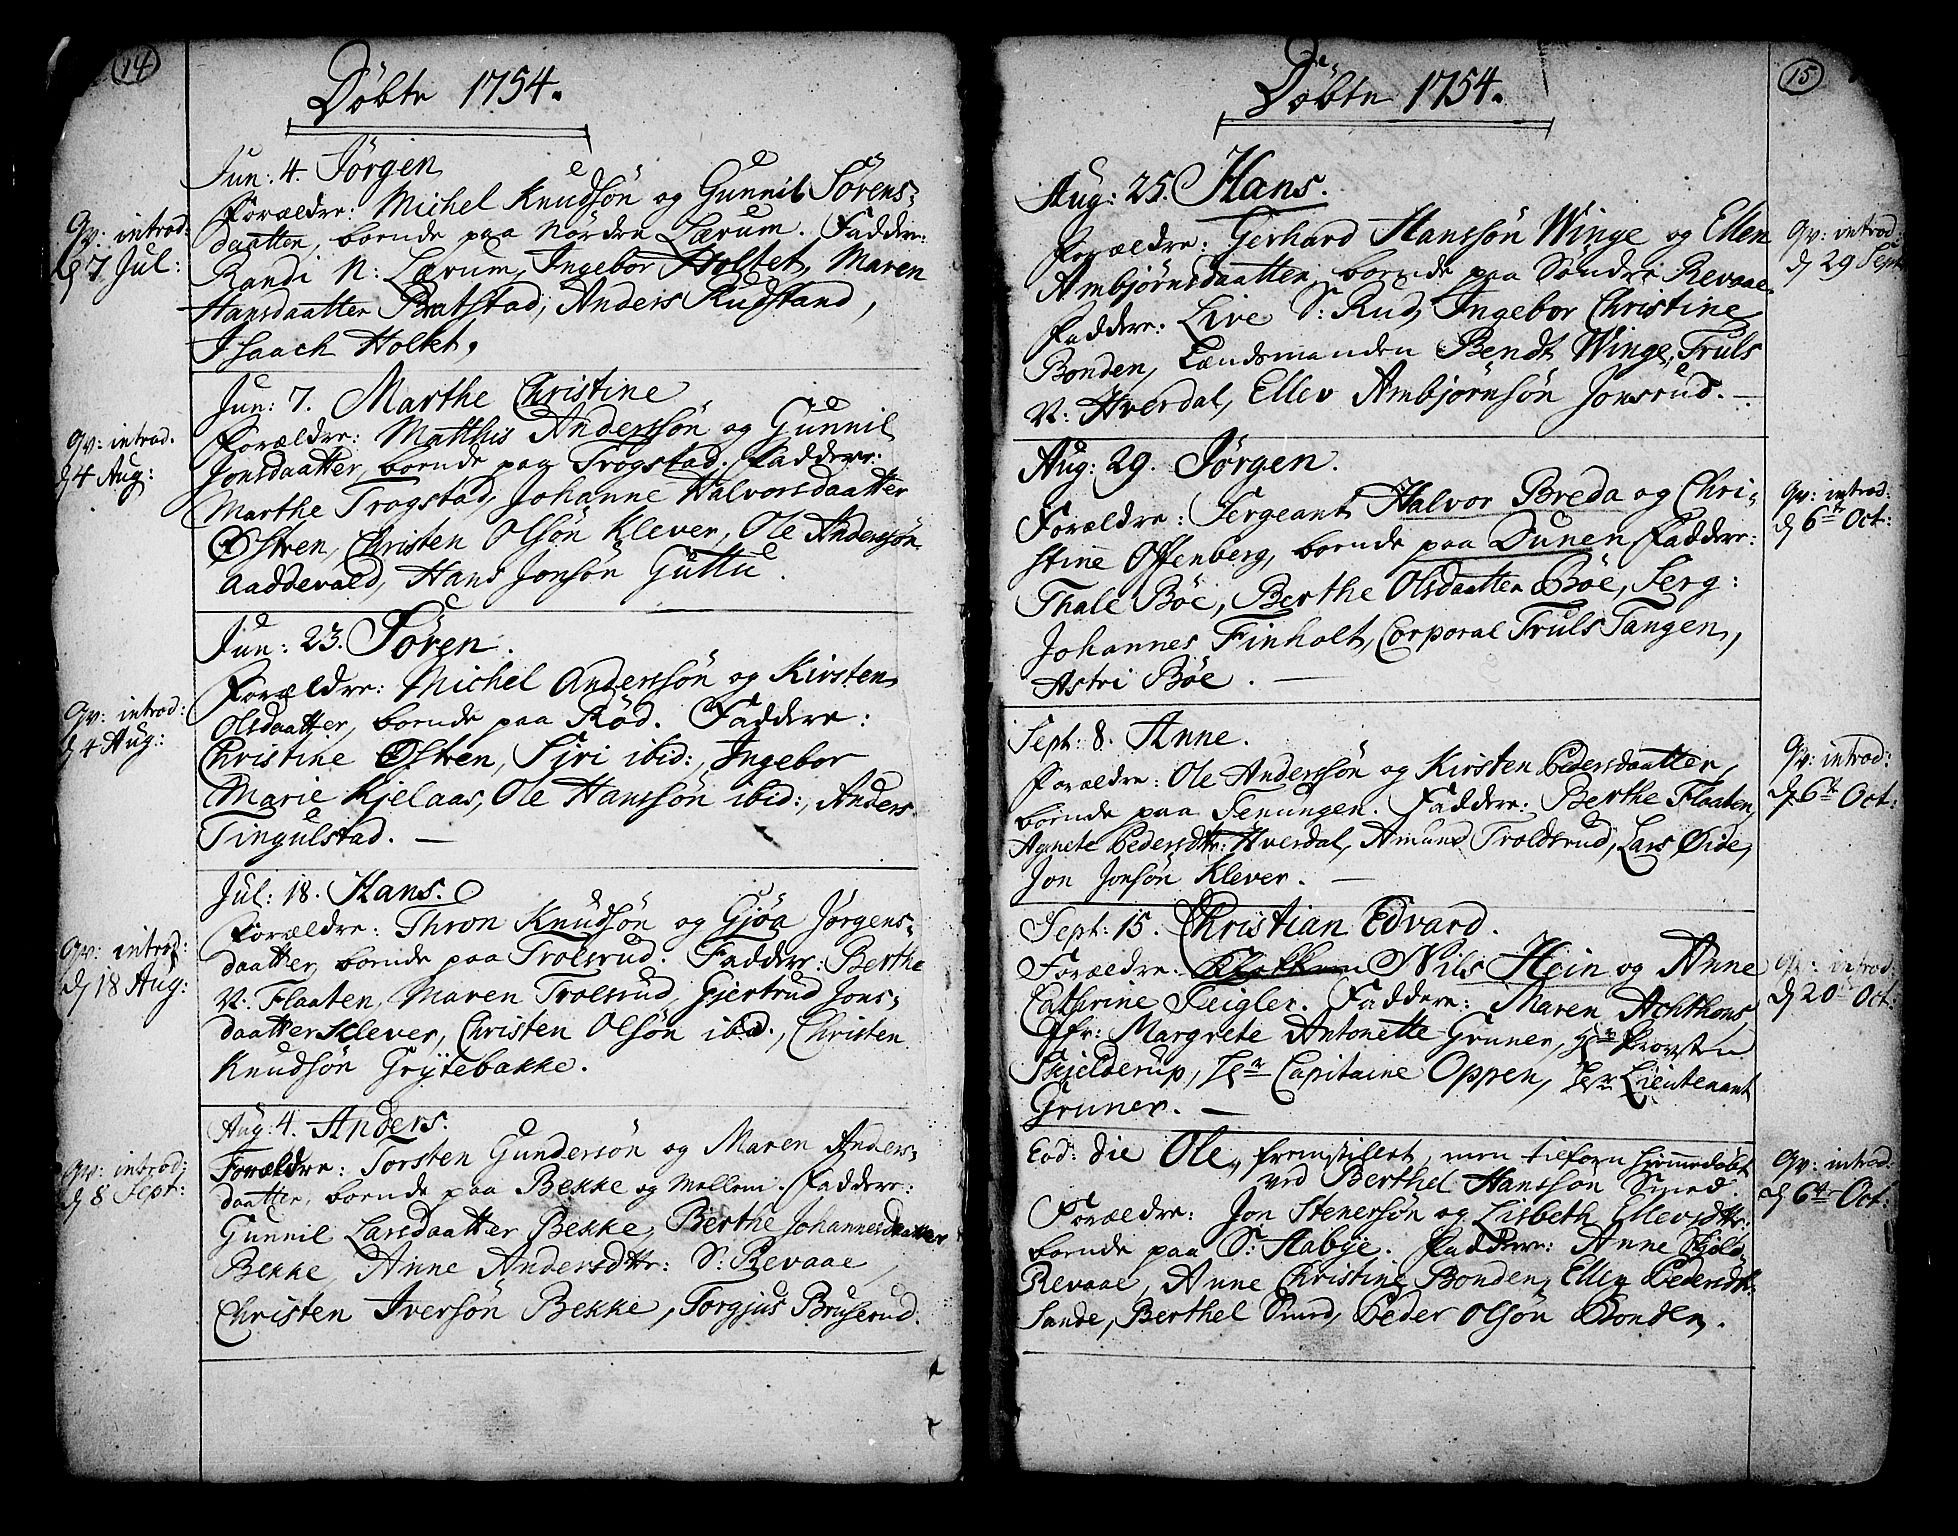 14
Döbte 1754.
Jun: 4. Jörgen
Forældre: Michel Knudsön og Gunnil Sörens-
daatter, boende paa Nordre Lærum. Faddere:
Randi N: Lærum, Ingebor Holtet, Maren
Hansdaatter Bratstad, Anders Rudstand,
Isaach Holtet.
Qv: introd:
d 7 Jul:
Jun: 7. Marthe Christine
Forældre: Matthis Anderssön og Gunnil
Jonsdaatter, boende paa Trogstad. Faddere:
Marthe Trogstad, Johanne Halvorsdaatter
Østren, Christen Olsön Klever, Ole Anderssön
Aaddevald, Hans Jonsön Guttu.
Qv: introd.
d 4 Aug:
Jun: 23. Sören.
Forældre: Michel Anderssön og Kirsten
Olsdaatter, boende paa Röd. Faddere:
Christine Østren, Siri ibid:, Ingebor
Marie Kjelaas, Ole Hanssön ibid:, Anders
Tingulstad. —
Qv: introd:
d 4 Aug:
Jul: 18. Hans.
Forældre: Thron Knudsön og Gjöa Jörgens-
daatter, boende paa Trolsrud. Faddere: Berthe
N: Flaaten, Maren Trolsrud, Gjertrud Jons-
daatter Klever, Christen Olsön ibid., Christen
Knudsön Grÿtebakke.
Qv: introd:
d 18 Aug:
Aug: 4. Anders.
Forældre: Torsten Gundersön og Maren Anders-
daatter, boende paa Bekke og Mellem. Faddere:
Gunnil Larsdaatter Bekke, Berthe Johannesdaatter
Bekke, Anne Andersdtr: S: Revaae,
Christen Iversön Bekke, Torgjus Bruserud.
Qv: introd:
d 8 Sept:
15
Döbte 1754.
Aug: 25. Hans.
Forældre: Gerhard Hanssön Winge og Ellen
Ambjörnsdaatter, boende paa Söndre Revaae.
Faddere: Live S: Rud, Ingebor Christine
Bonden, Lændsmanden Bendt Winge, Truls
N: Hverdal, Ellev Ambjörnsön Jonsrud. —
Qv: introd:
d 29 Sept
Aug: 29. Jörgen.
Forældre: Sergeant Halvor Breda og Chri-
stine Offenberg, boende paa Dunen Faddere:
Thale Böe, Berthe Olsdaatter Böe, Serg:
Johannes Finholt, Corporal Truls Tangen,
Astri Böe. —
Qv: introd:
d 6te Oct:
Sept: 8. Anne.
Forældre: Ole Anderssön og Kirsten Pedersdaatter,
boende paa Fenungen. Faddere: Berthe Flaaten,
Agnete Pedersdtr: Hverdal, Amund Troldsrud, Lars Øide,
Jon Jonsön Klever. —
Qv: introd:
d 6te Oct:
Sept: 15. Christian Edvard.
Forældre: Nils Hein og Anne
Cathrine Zeigler. Faddere: Maren Achthons,
Jfr: Margrete Antonette Gruner, Hr Provsten
Skjelderup, Hr Capitaine Oppen, Hr Lieutenant
Gruner. —
Qv: introd:
d 20 Oct:
Eod: die Ole, fremstillet, men tilforn hjemmedöbt
ved Berthel Hanssön Smed.
Forældre: Jon Stenersön og Lisbeth Ellevsdtr:
boende paa S: Habye. Faddere: Anne
Revaae, Anne Christine Bonden, Ellen Pedersdtr.
Sande, Berthel Smed, Peder Olsön Bonden.
Qv: introd:
d 6te Oct: